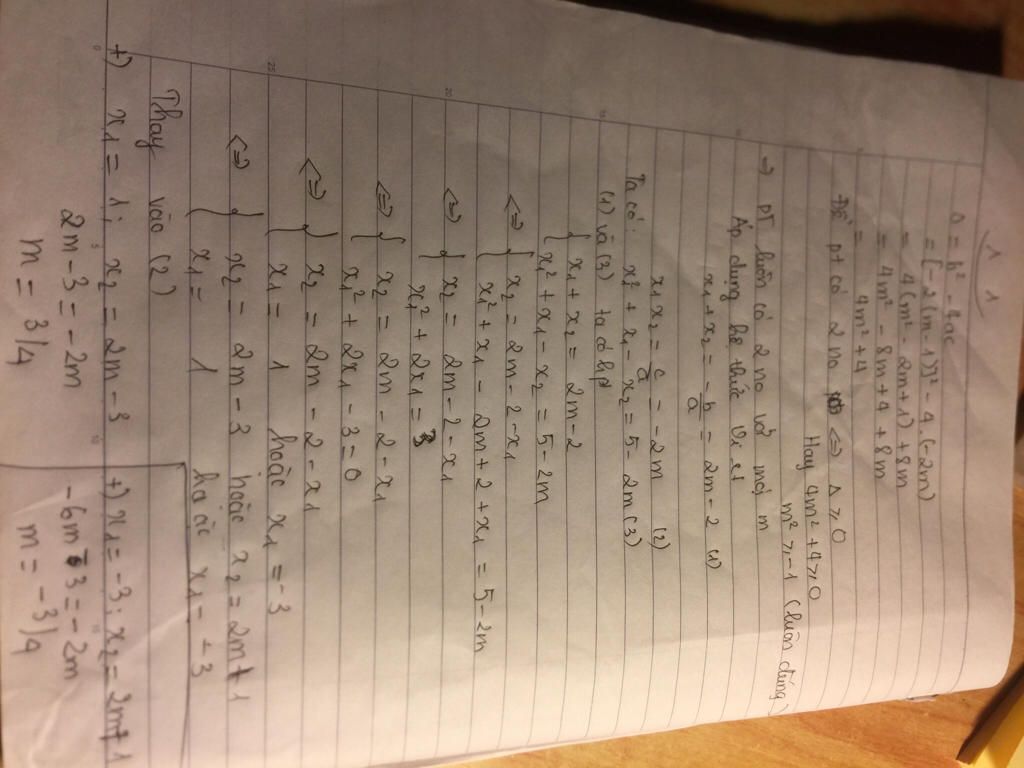 1 1
Δ = b² - 4ac
= (-2(m-1))² - 4.(-2m)
= 4(m² - 2m+1) +8m
= 4m² - 8m+4 +8m
= 4m²+4
Để pt có 2 no <=> Δ ≥ 0
Hay 4m²+4 ≥ 0
m² ≥ -1 (luôn đúng)
=> PT luôn có 2 no với mọi m
Áp dụng hệ thức Vi et
x1+x2 = -b/a = 2m-2 (1)
x1x2 = c/a = -2m (2)
Ta có: x1² + x1 - x2 = 5-2m (3)
(1) và (3) ta có hpt
{ x1+x2 = 2m-2
x1² + x1 - x2 = 5-2m
<=> { x2 = 2m-2-x1
x1² + x1 - 2m+2 +x1 = 5-2m
<=> { x2 = 2m-2-x1
x1² + 2x1 = 3
<=> { x2 = 2m-2-x1
x1² + 2x1 - 3 = 0
<=> { x2 = 2m-2-x1
x1 = 1 hoặc x1 = -3
<=> { x2 = 2m-3 hoặc x2 = 2m+1
x1 = 1 hoặc x1 = -3
Thay vào (2)
+) x1 = 1; x2 = 2m-3
2m-3 = -2m
m = 3/4
+) x1 = -3; x2 = 2m+1
-6m-3 = -2m
m = -3/4